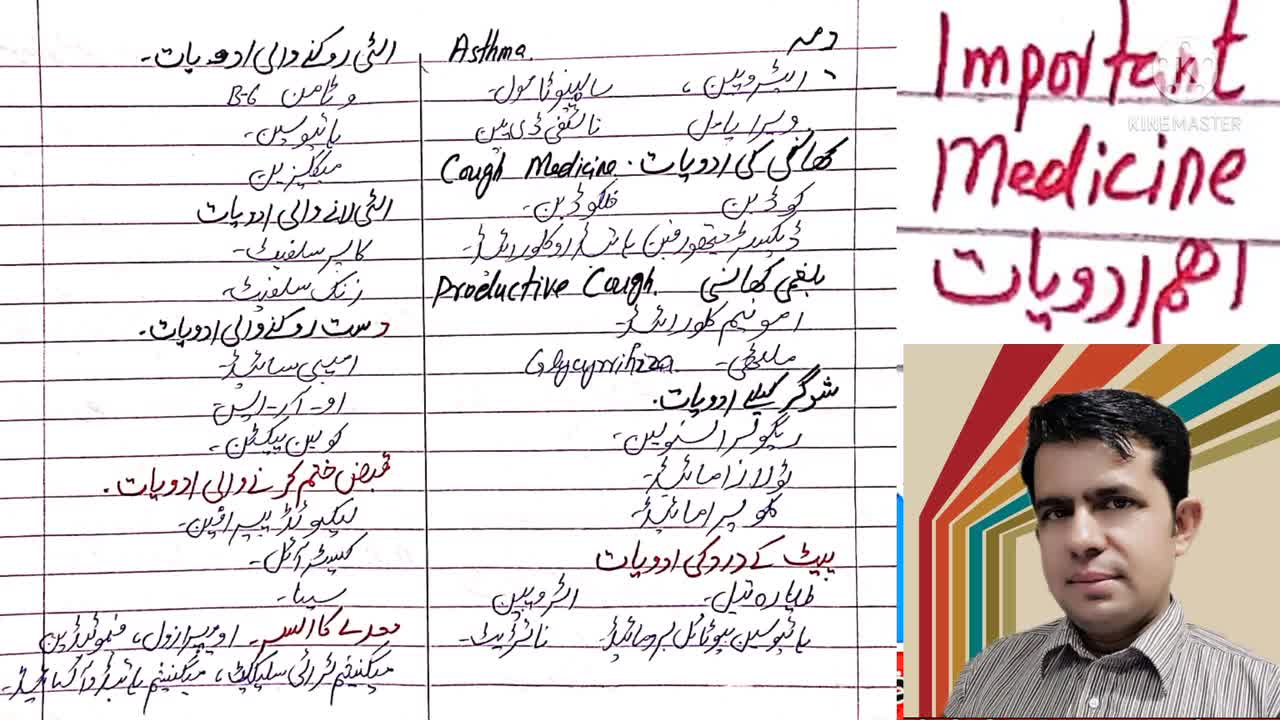 دمہ Asthma
ایٹروپین، سالبیوٹامول۔
ویراپامل نائیفی ڈی پین
کھانسی کی ادویات۔ Cough Medicine
کوڈین فلکوڈین۔
ڈیکسٹرومیتھورفین ہائیڈروکلورائیڈ۔
بلغمی کھانسی Productive Cough.
امونیم کلورائیڈ۔
ملٹھی۔
شوگر کیلئے ادویات۔
ریگولر انسولین۔
ٹولازامائیڈ۔
پیٹ کے درد کی ادویات
ایٹروپین
ہائیوسین بیوٹائل برومائیڈ۔
الٹی روکنے والی ادویات۔
وٹامن B-6
ہائیوسین۔
میکلیزین
الٹی لانے والی ادویات
کاپر سلفیٹ۔
زنک سلفیٹ۔
دست روکنے والی ادویات۔
امیبی سائیڈ۔
او۔آر۔ایس
کولین پیکٹن۔
قبض ختم کرنے والی ادویات۔
لیکوئڈ پیرافین۔
کیسٹر آئل۔
سینا۔
معدے کا السر۔ اومیپرازول، فیموٹیڈین
میگنیشیم ٹرائی سلیکیٹ، میگنیشیم ہائیڈروآکسائیڈ۔
Important
Medicine
اہم ادویات
KINEMASTER